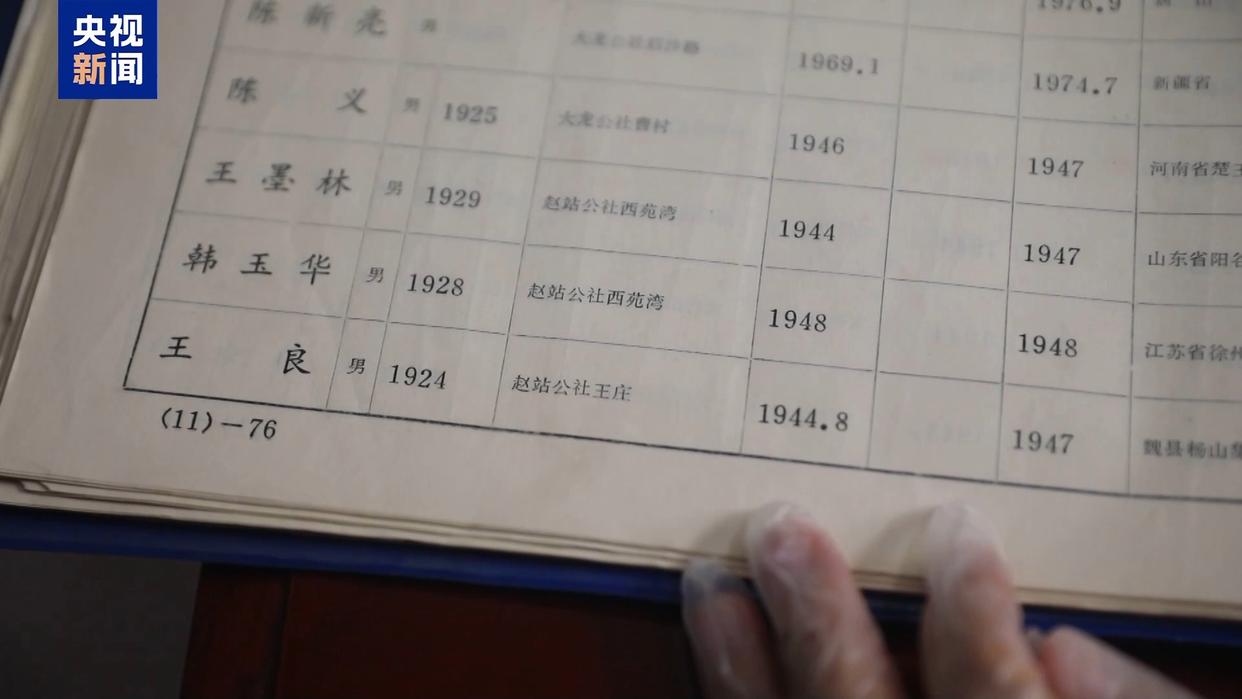 央视
新闻
1976.9
陈新亮 男 1969.1 1974.7 新疆省
陈义 男 1925 大龙公社曹村 1946 1947 河南省楚王
王墨林 男 1929 赵站公社西苑湾 1944 1947 山东省阳谷
韩玉华 男 1928 赵站公社西苑湾 1948 1948 江苏省徐州
王良 男 1924 赵站公社王庄 1944.8 1947 魏县杨山集
(11)－76